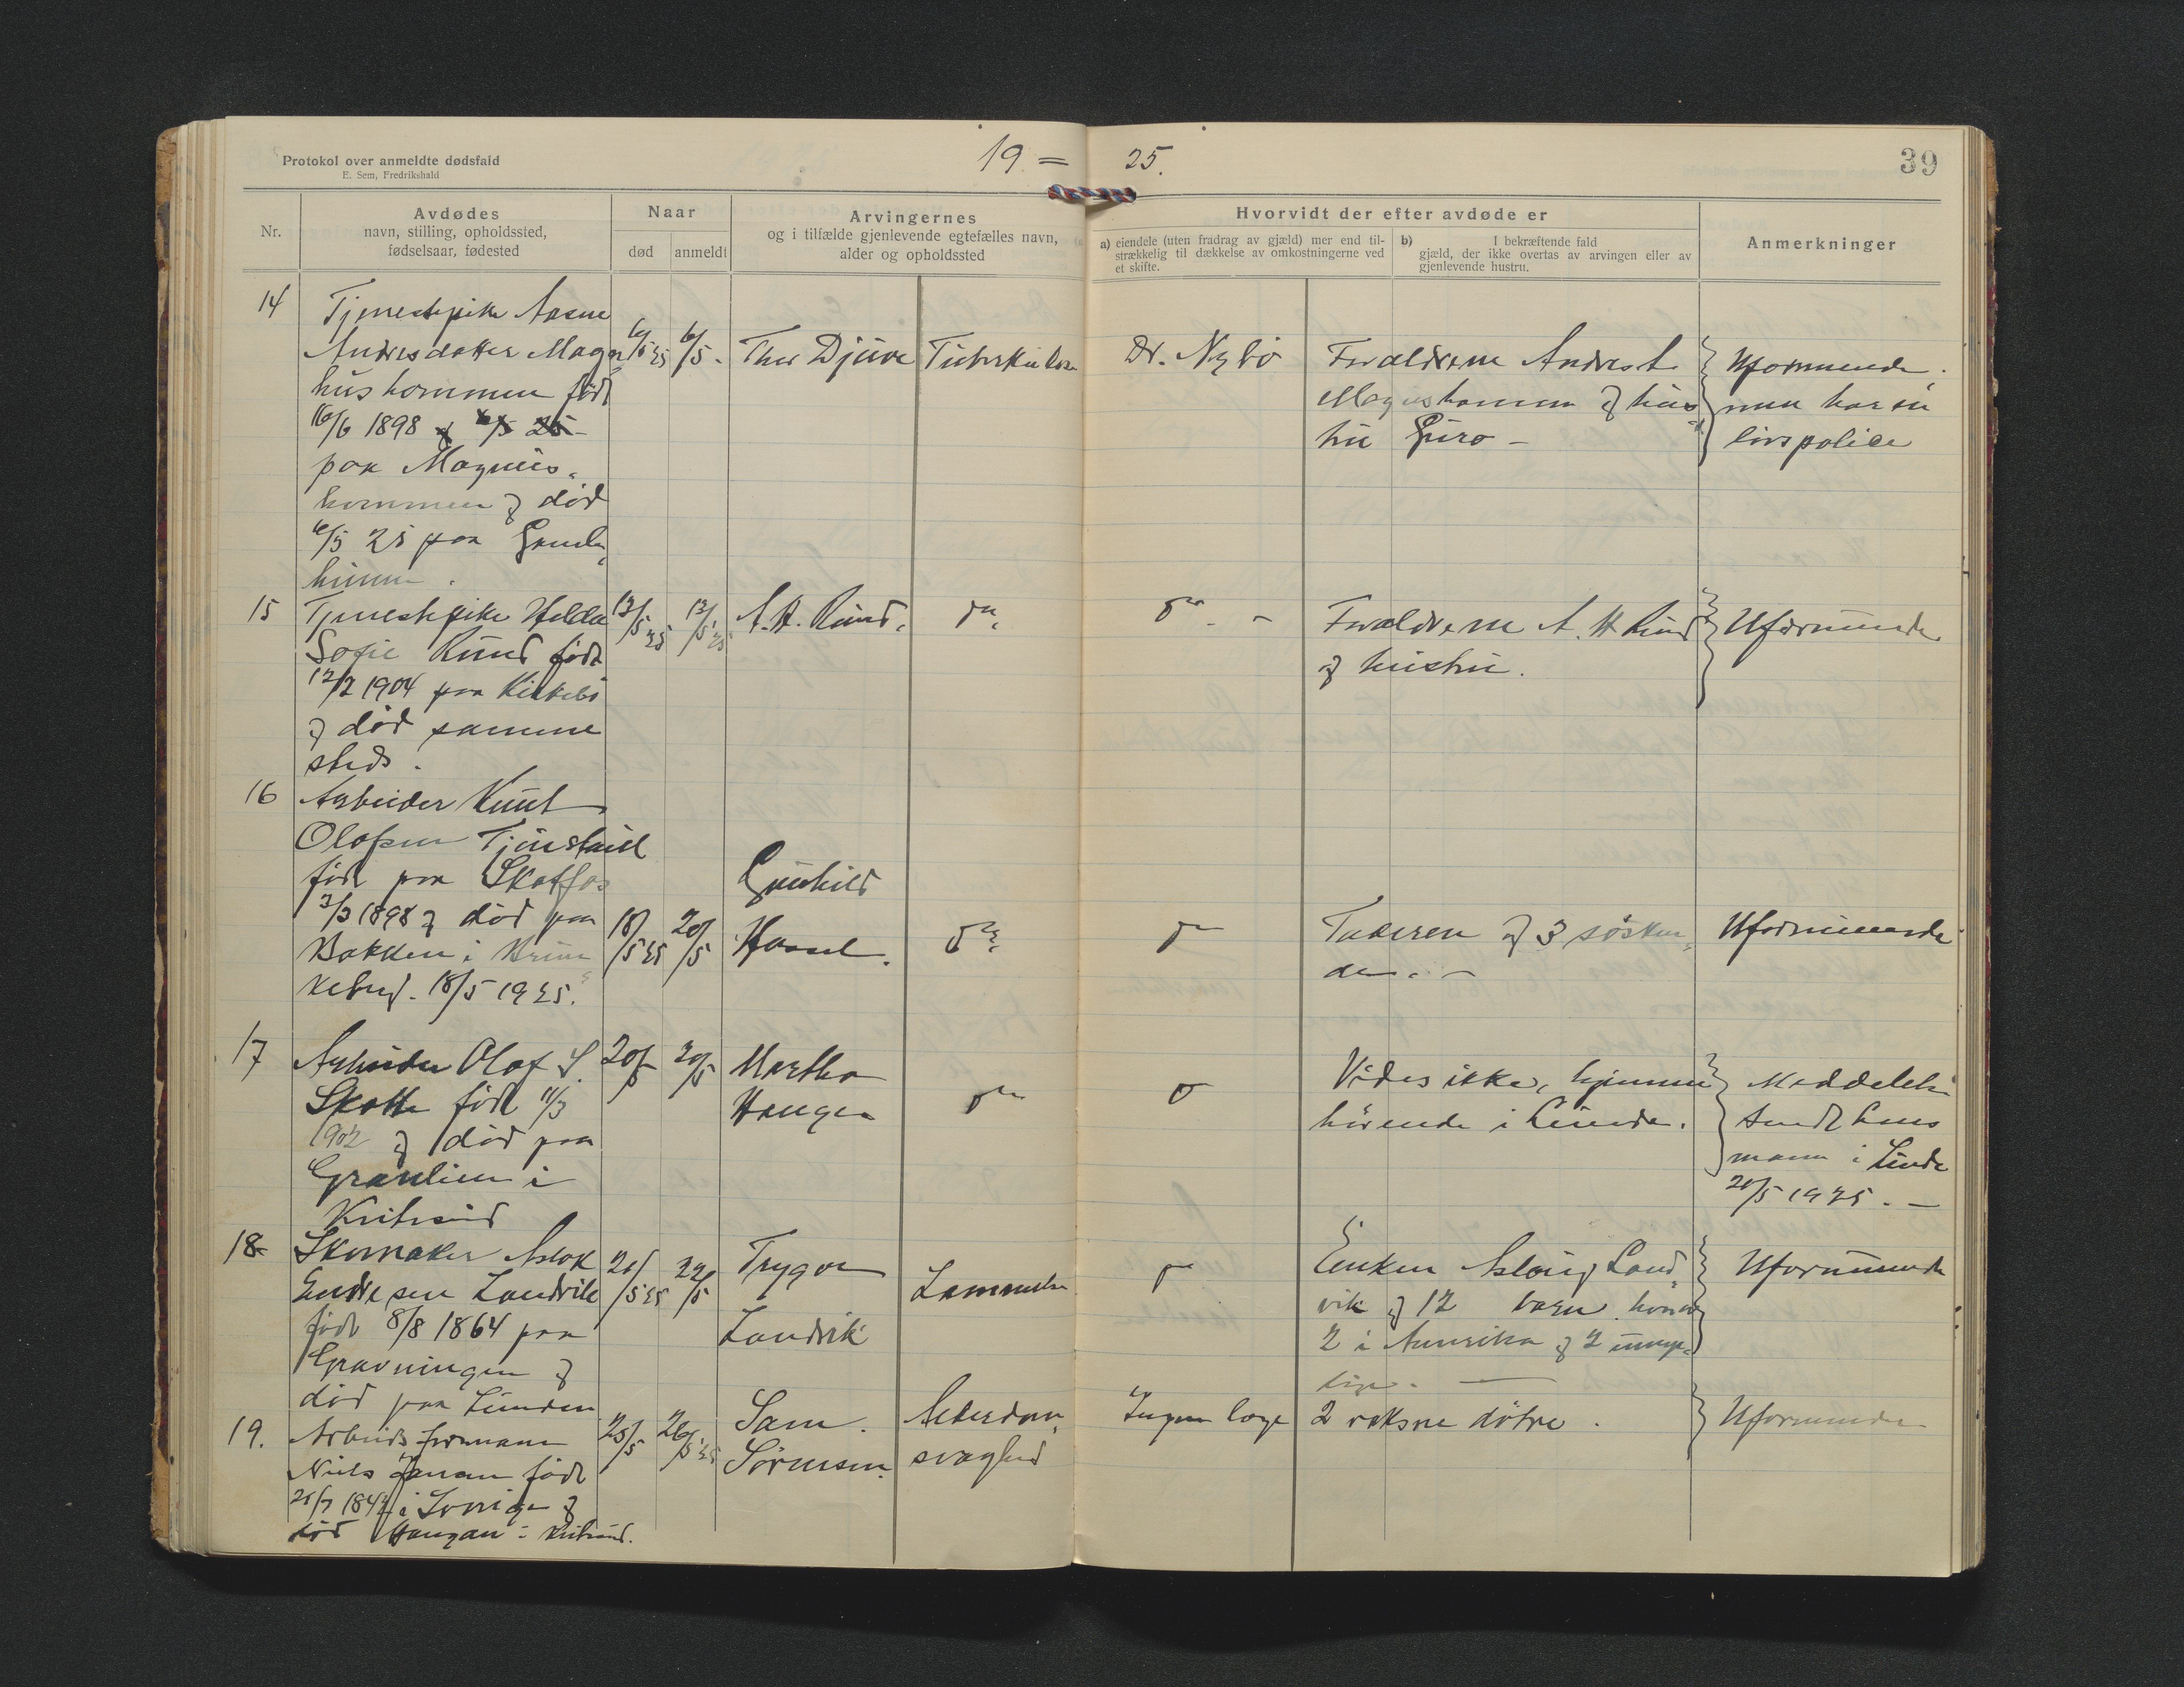 Protokol over anmeldte dødsfald
E. Sem, Fredrikshald
19 = 25.
39
Nr.
Avdødes
navn, stilling, opholdssted,
fødselsaar, fødested
Naar
død
anmeldt
Arvingernes
og i tilfælde gjenlevende egtefælles navn,
alder og opholdssted
Hvorvidt der efter avdøde er
a) eiendele (uten fradrag av gjæld) mer end til-
strækkelig til dækkelse av omkostningerne ved
et skifte.
b) I bekræftende fald
gjæld, der ikke overtas av arvingen eller av
gjenlevende hustru.
Anmerkninger
14
Tjenestepike Aasne
Andresdatter Magn
hushommen født
16/6 1898
paa Magnus-
hommen & død
6/5 25 paa
6/5 25
6/5 -
Thor Djuve
Tuberkulose
Dr. Nybö
Forældrene Andres
Magnushommen & hus
tru Guro -
Uformuende.
men har en
livspolice
15
Tjenestepike Helda
Sofie Ruud født
12/2 1904 paa Kirkebö
& död samme
steds.
13/5 25
13/5 25
A. H. Ruud.
do
do -
Forældrene A. H Ruud
& hustru.
Uformuende
16
Arbeider Knut
Olafsen
født paa Skotfos
3/3 1898 & død paa
Bakken i
18/5 1925.
18/5 25
20/5
Gunhild
do
do
Faderen & 3 søsken-
de. -
Uformuende
17
Arbeider Olaf S.
Skotte født 11/3
1902 & død paa
Granlien i
Kviteseid
20/5
20/5
Martha
Haugen
do
do
Vides ikke, hjemme
hörende i Lunde.
Meddelelse
sendt lens
mann i Lunde
20/5 1925. -
18
Skomaker Aslak
Endresen Landvik
født 8/8 1864 paa
Gravningen &
död paa Lunden
20/5 25
22/5
Trygve
Landvik
Lammelse
do
Enken Aslaug Land-
vik & 12 barn hvorav
2 i Amerika & 2 umyn-
dige. -
Uformuende
19.
Arbeidsformann
Niels født
i Sverige &
död Haugan i Kviteseid.
25/5
26/5 25
Sam.
Sörensen.
Alderdom,
svaghed
Ingen læge
2 voksne døtre.
Uformuende